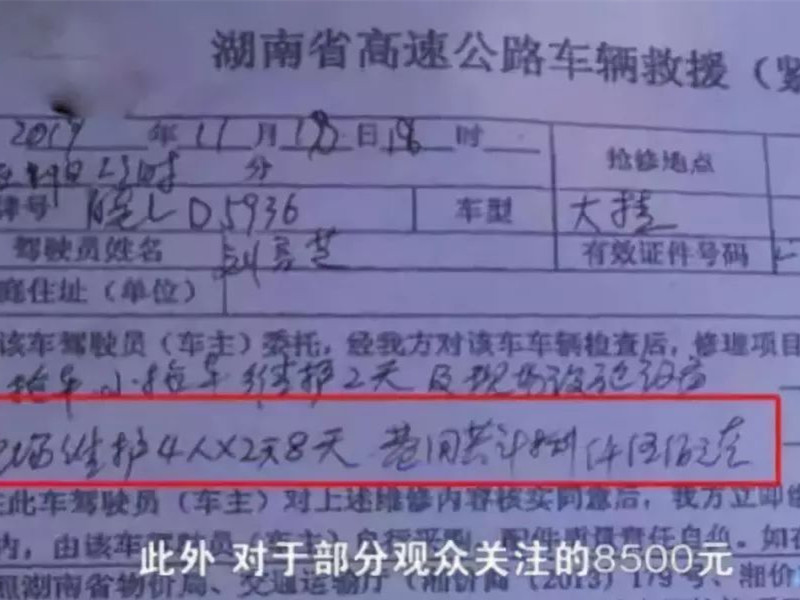 湖南省高速公路车辆救援（紧
2017 年 11 月 18 日 18 时
分 抢修地点
牌号 皖L D5936 车型 大挂
驾驶员姓名 有效证件号码
庭住址（单位）
该车驾驶员（车主）委托，经我方对该车车辆检查后，修理项目
拖车 小拖车 维护2天 及现场
现场维护4人×2天8天 费用共计捌仟伍佰元整
在此车驾驶员（车主）对上述维修内容核实同意后，我方立即
内，由该车驾驶员（车主）自行采购，配件质量责任自负。如在
照湖南省物价局、交通运输厅（湘价商（2013）179号、湘价
此外 对于部分观众关注的8500元